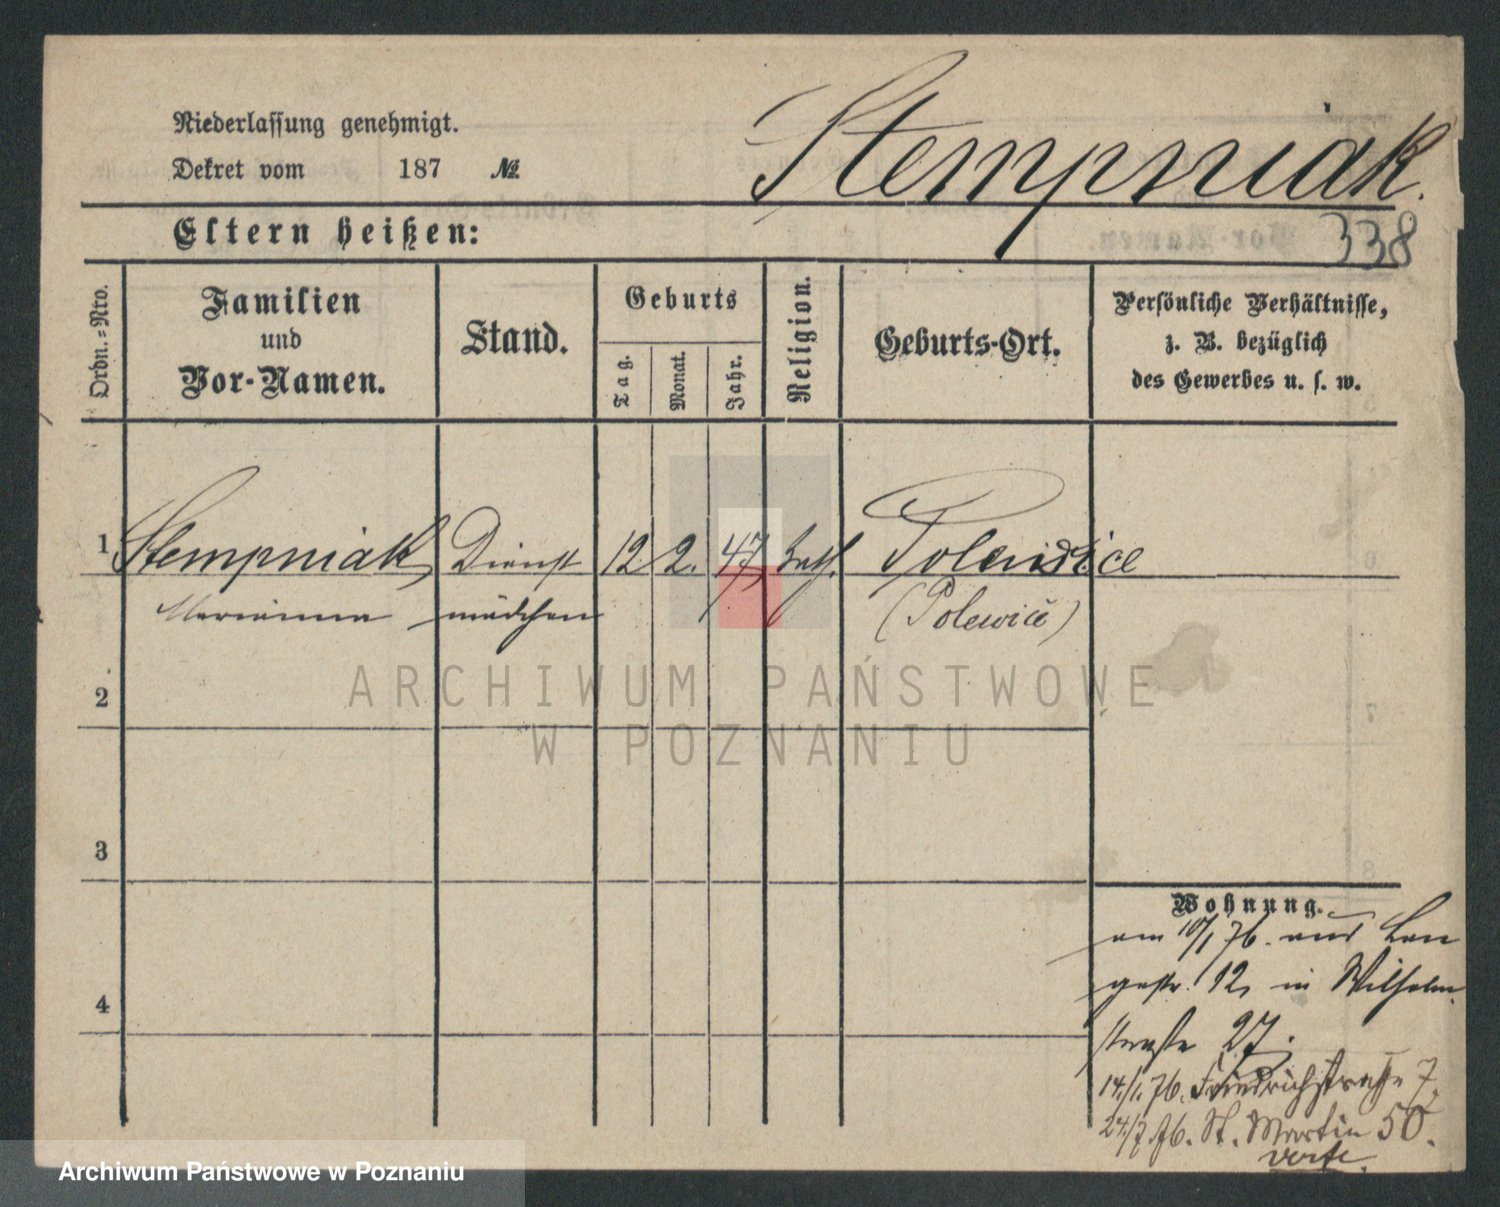 Stempniak.
Niederlassung genehmigt.
Dekret vom 187 №
Eltern heißen:
338
Ordn.-Nro.
Familien
und
Vor-Namen.
Stand.
Geburts
Tag.
Monat.
Jahr.
Religion.
Geburts-Ort.
Persönliche Verhältnisse,
z. B. bezüglich
des Gewerbes u. s. w.
1 Stempniak, Dienst 12. 2. 47, kath. Polewice
Marianna mädchen (Polewic)
2
3
4
ARCHIWUM PAŃSTWOWE
W POZNANIU
Wohnung.
am 10/1 76. aus Lan
gestr. 12, in Wilhelm
straße 27.
14./1. 76. Friedrichstraße 7.
24/7 76. St. Martin 50.
verte.
Archiwum Państwowe w Poznaniu